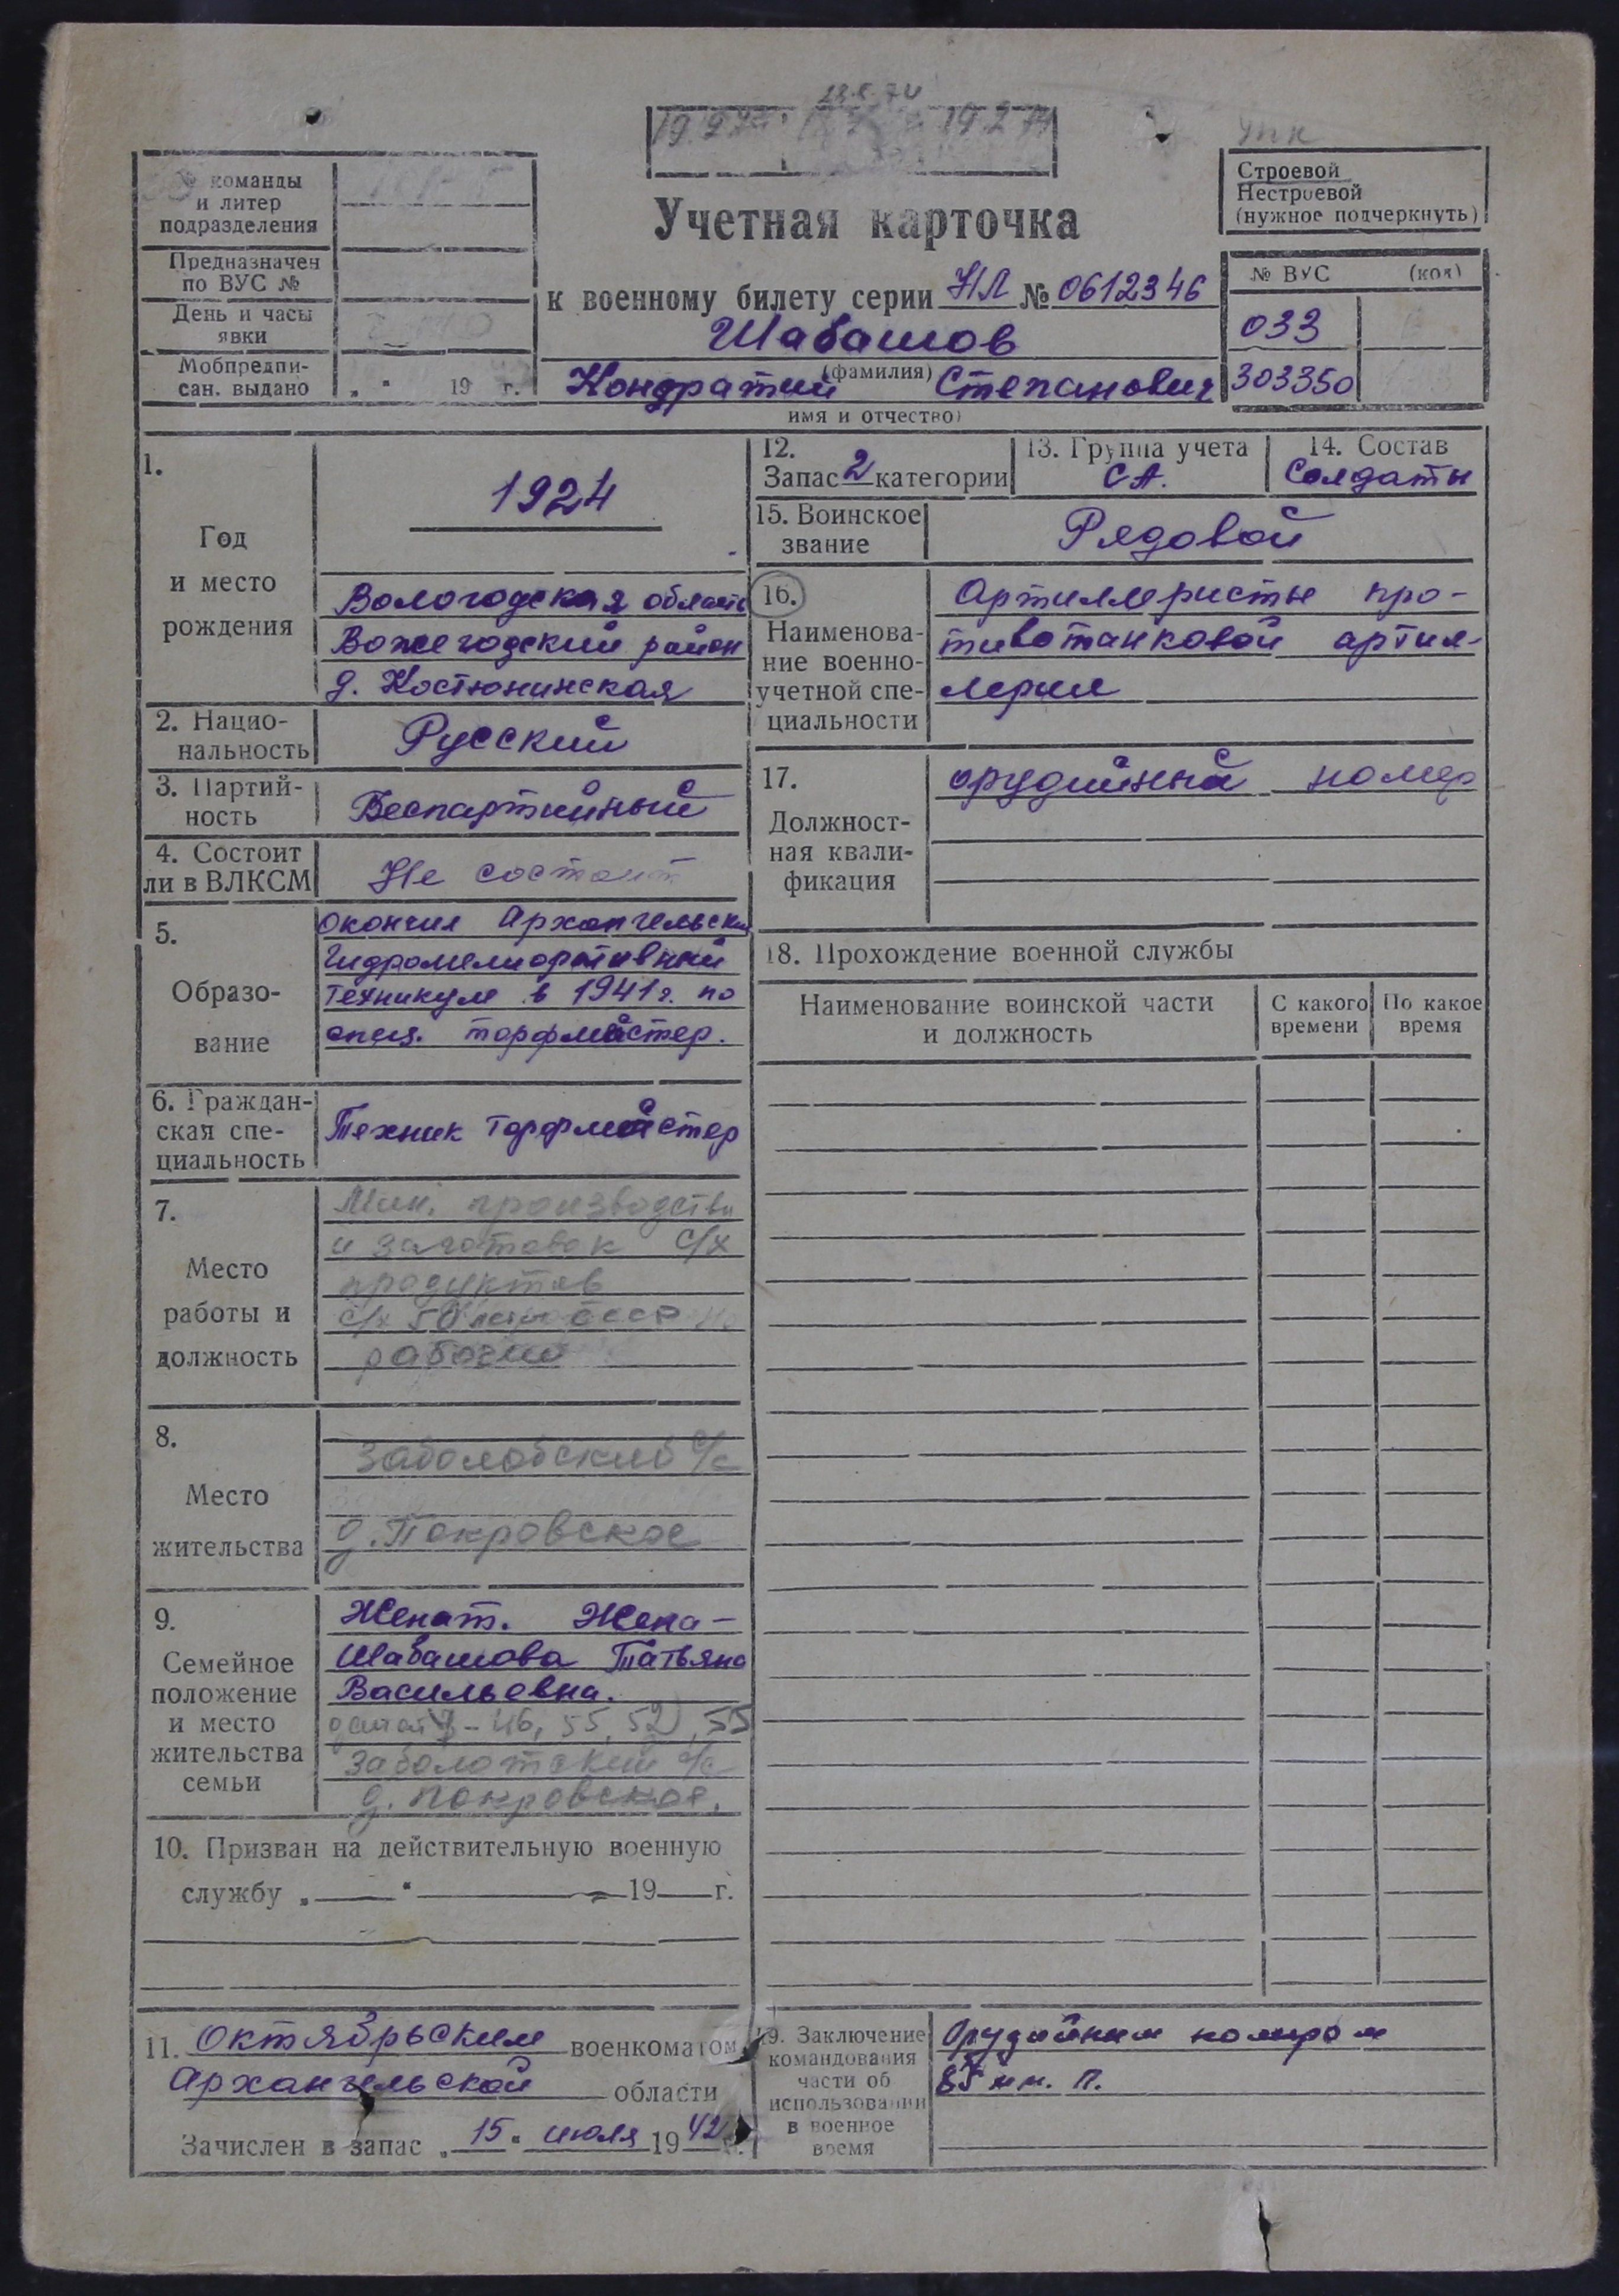 28.2.74
19.2.74
упк
№ команды
и литер
подразделения
Предназначен
по ВУС №
День и часы
явки
Мобпредпи-
сан. выдано „ “ 19 г.
Учетная карточка
к военному билету серии НЛ № 0612346
Шабашов
(фамилия)
Кондратий Степанович
имя и отчество)
Строевой
Нестроевой
(нужное подчеркнуть)
№ ВУС (код)
033
303350
1.
Год
и место
рождения
1924
Вологодская область
Вожегодский район
д. Костюнинская
2. Нацио-
нальность
Русский
3. Партий-
ность
Беспартийный
4. Состоит
ли в ВЛКСМ
Не состоит
5.
Образо-
вание
Окончил Архангельский
Гидромелиоративный
Техникум в 1941г. по
спец. торфмастер.
6. Граждан-
ская спе-
циальность
Техник торфмастер
7.
Место
работы и
должность
Мин. производства
и заготовок с/х
продуктов
с/х 50 лет СССР
рабочий
8.
Место
жительства
Заболотский с/с
д. Покровское
9.
Семейное
положение
и место
жительства
семьи
Женат. Жена –
Шабашова Татьяна
Васильевна.
46, 55, 52, 55
Заболотский с/с
д. Покровское.
10. Призван на действительную военную
службу „ “ 19 г.
11. Октябрьским военкоматом
Архангельской области
Зачислен в запас „15“ июля 1942 г.
12.
Запас 2 категории
13. Группа учета
СА.
14. Состав
Солдаты
15. Воинское
звание
Рядовой
16.
Наименова-
ние военно-
учетной спе-
циальности
Артиллеристы про-
тивотанковой артил-
лерии
17.
Должност-
ная квали-
фикация
орудийный номер
18. Прохождение военной службы
Наименование воинской части
и должность
С какого
времени
По какое
время
19. Заключение
командования
части об
использовании
в военное
время
Орудийным номером
85 мм. п.